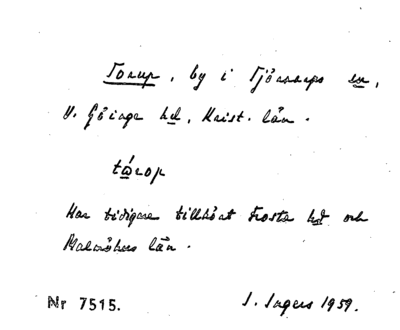 Torup, by i Tjörnarps sn,
V. Göinge hd, Krist. län.
tárop
Har tidigare tillhört Frosta hd och
Malmöhus län.
Nr 7515.
I. Ingers 1959.